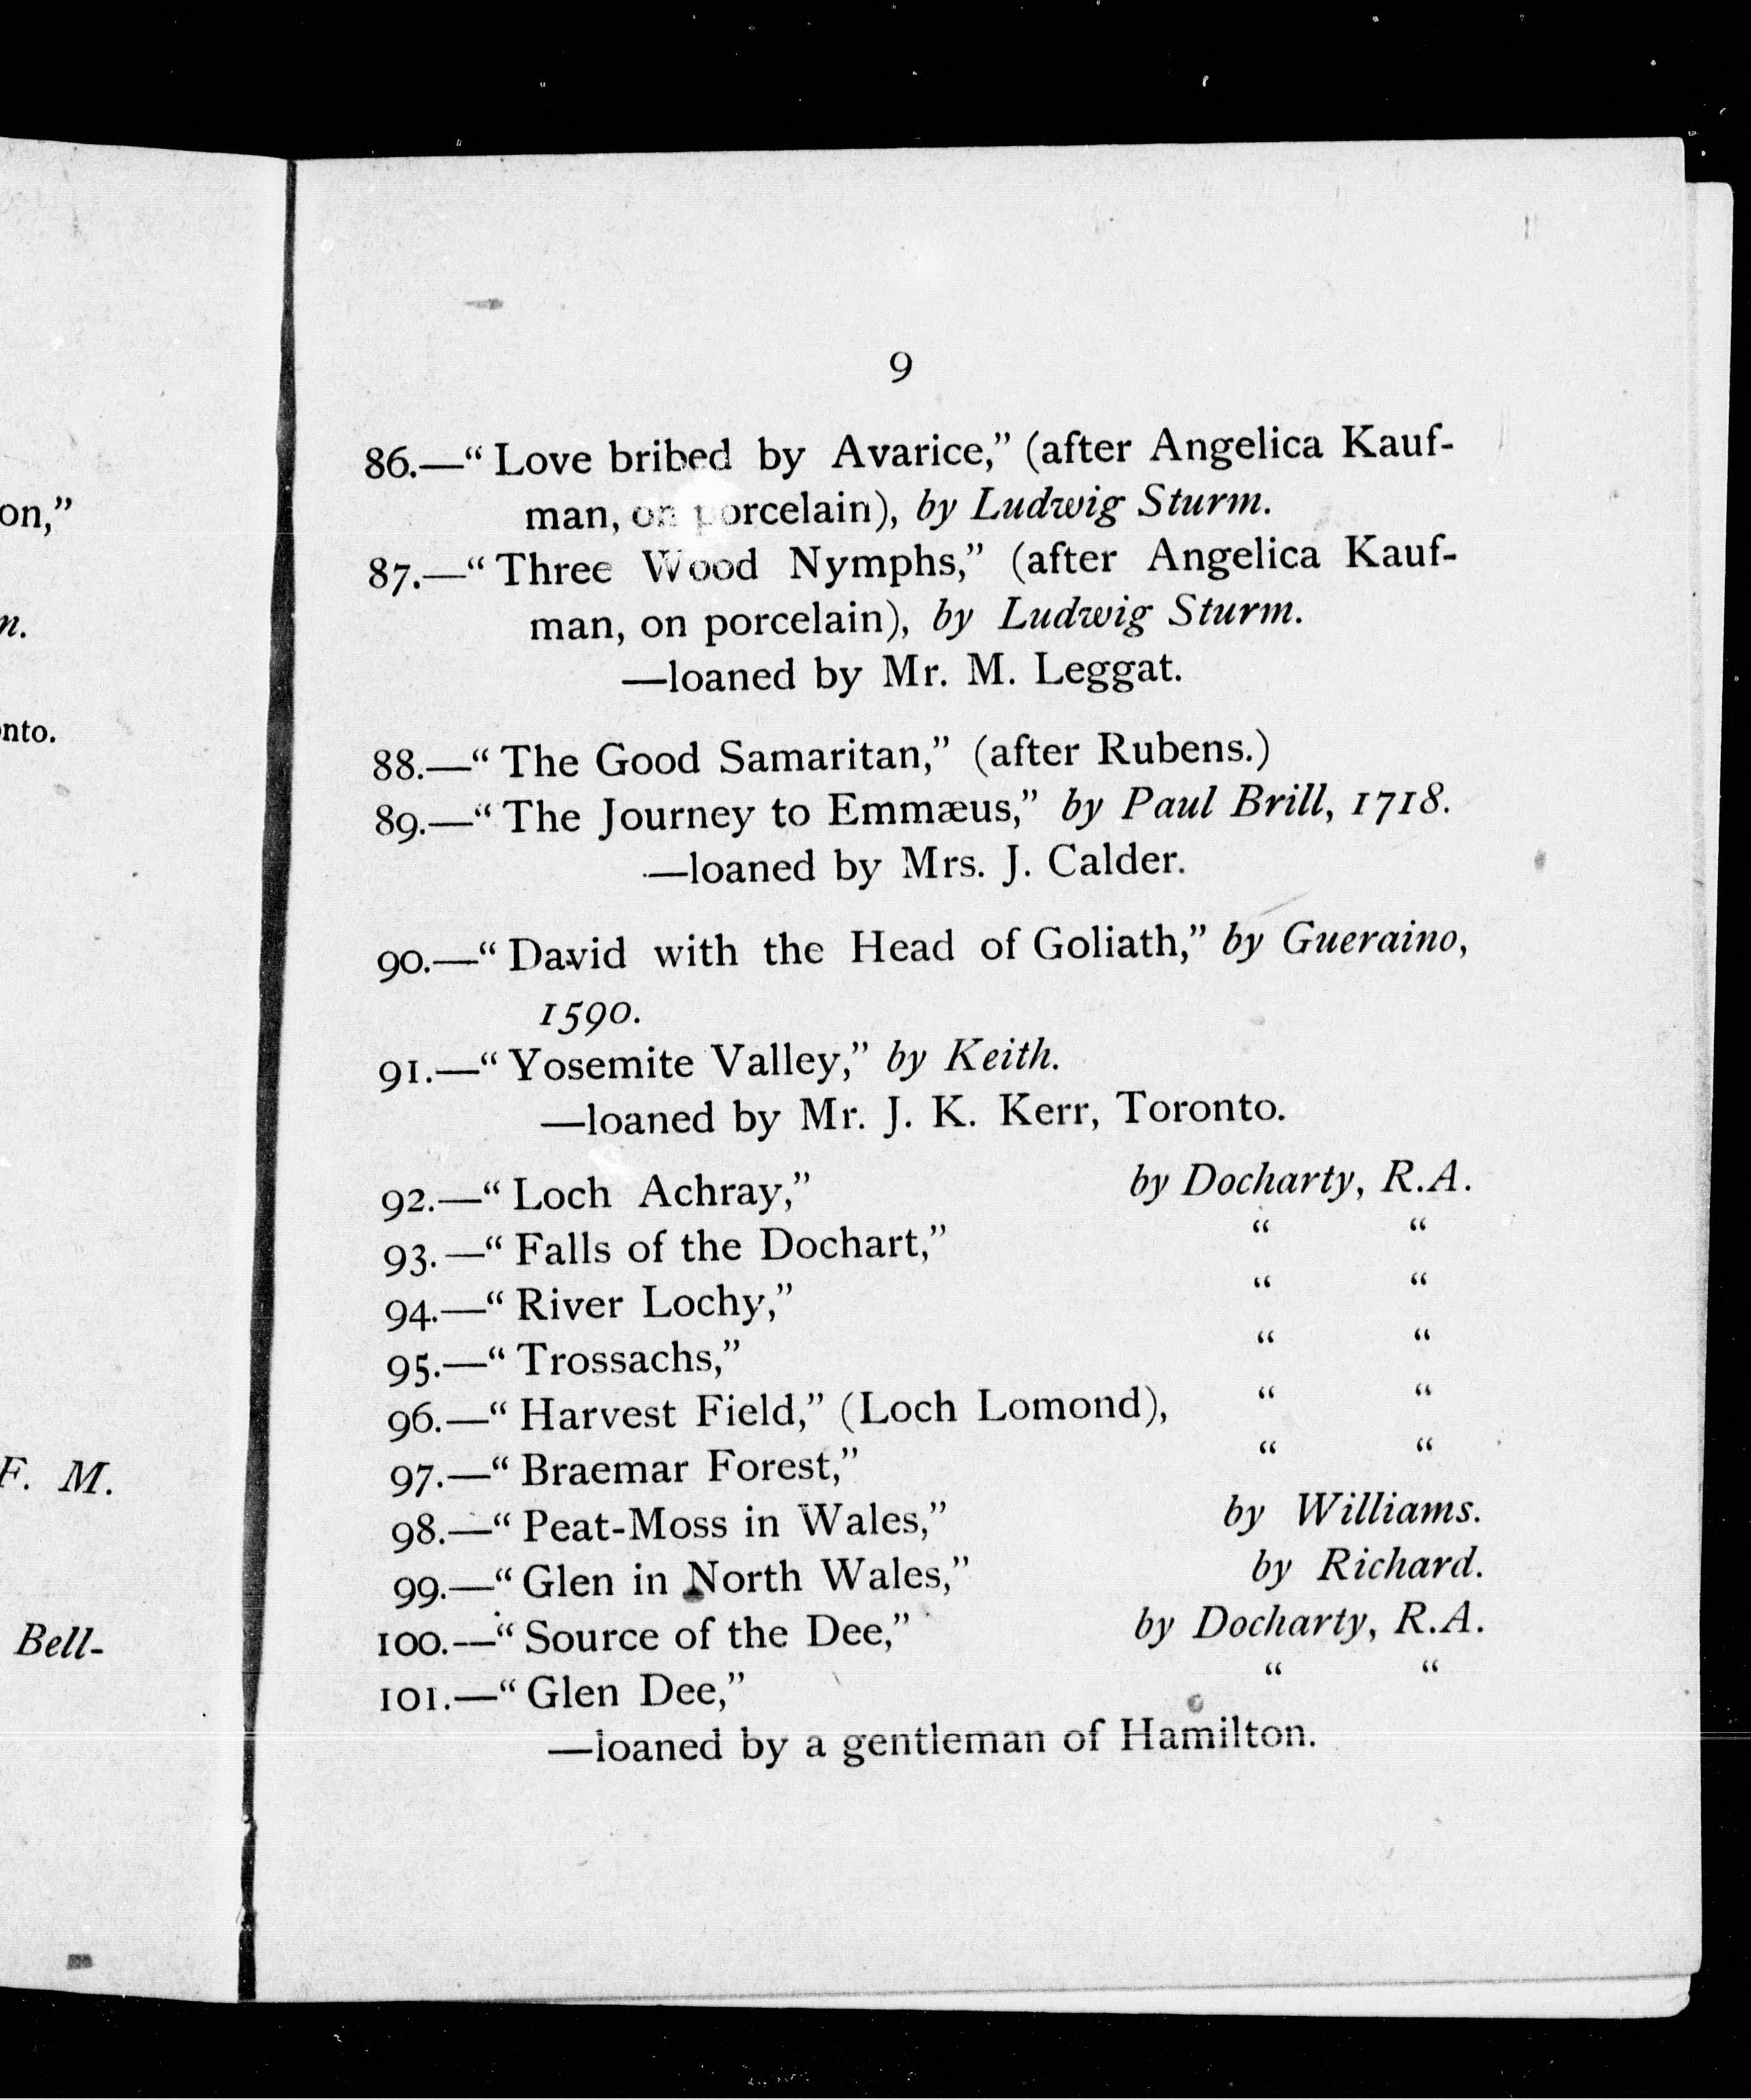 on,”
n.
nto.
F. M.
Bell-
9
86.—“ Love bribed by Avarice,” (after Angelica Kauf-
man, on porcelain), by Ludwig Sturm.
87.—“ Three Wood Nymphs,” (after Angelica Kauf-
man, on porcelain), by Ludwig Sturm.
—loaned by Mr. M. Leggat.
88.—“ The Good Samaritan,” (after Rubens.)
89.—“ The Journey to Emmæus,” by Paul Brill, 1718.
—loaned by Mrs. J. Calder.
90.—“ David with the Head of Goliath,” by Gueraino,
1590.
91.—“ Yosemite Valley,” by Keith.
—loaned by Mr. J. K. Kerr, Toronto.
92.—“ Loch Achray,” by Docharty, R.A.
93.—“ Falls of the Dochart,” “ “
94.—“ River Lochy,” “ “
95.—“ Trossachs,” “ “
96.—“ Harvest Field,” (Loch Lomond), “ “
97.—“ Braemar Forest,” “ “
98.—“ Peat-Moss in Wales,” by Williams.
99.—“ Glen in North Wales,” by Richard.
100.—“ Source of the Dee,” by Docharty, R.A.
101.—“ Glen Dee,” “ “
—loaned by a gentleman of Hamilton.